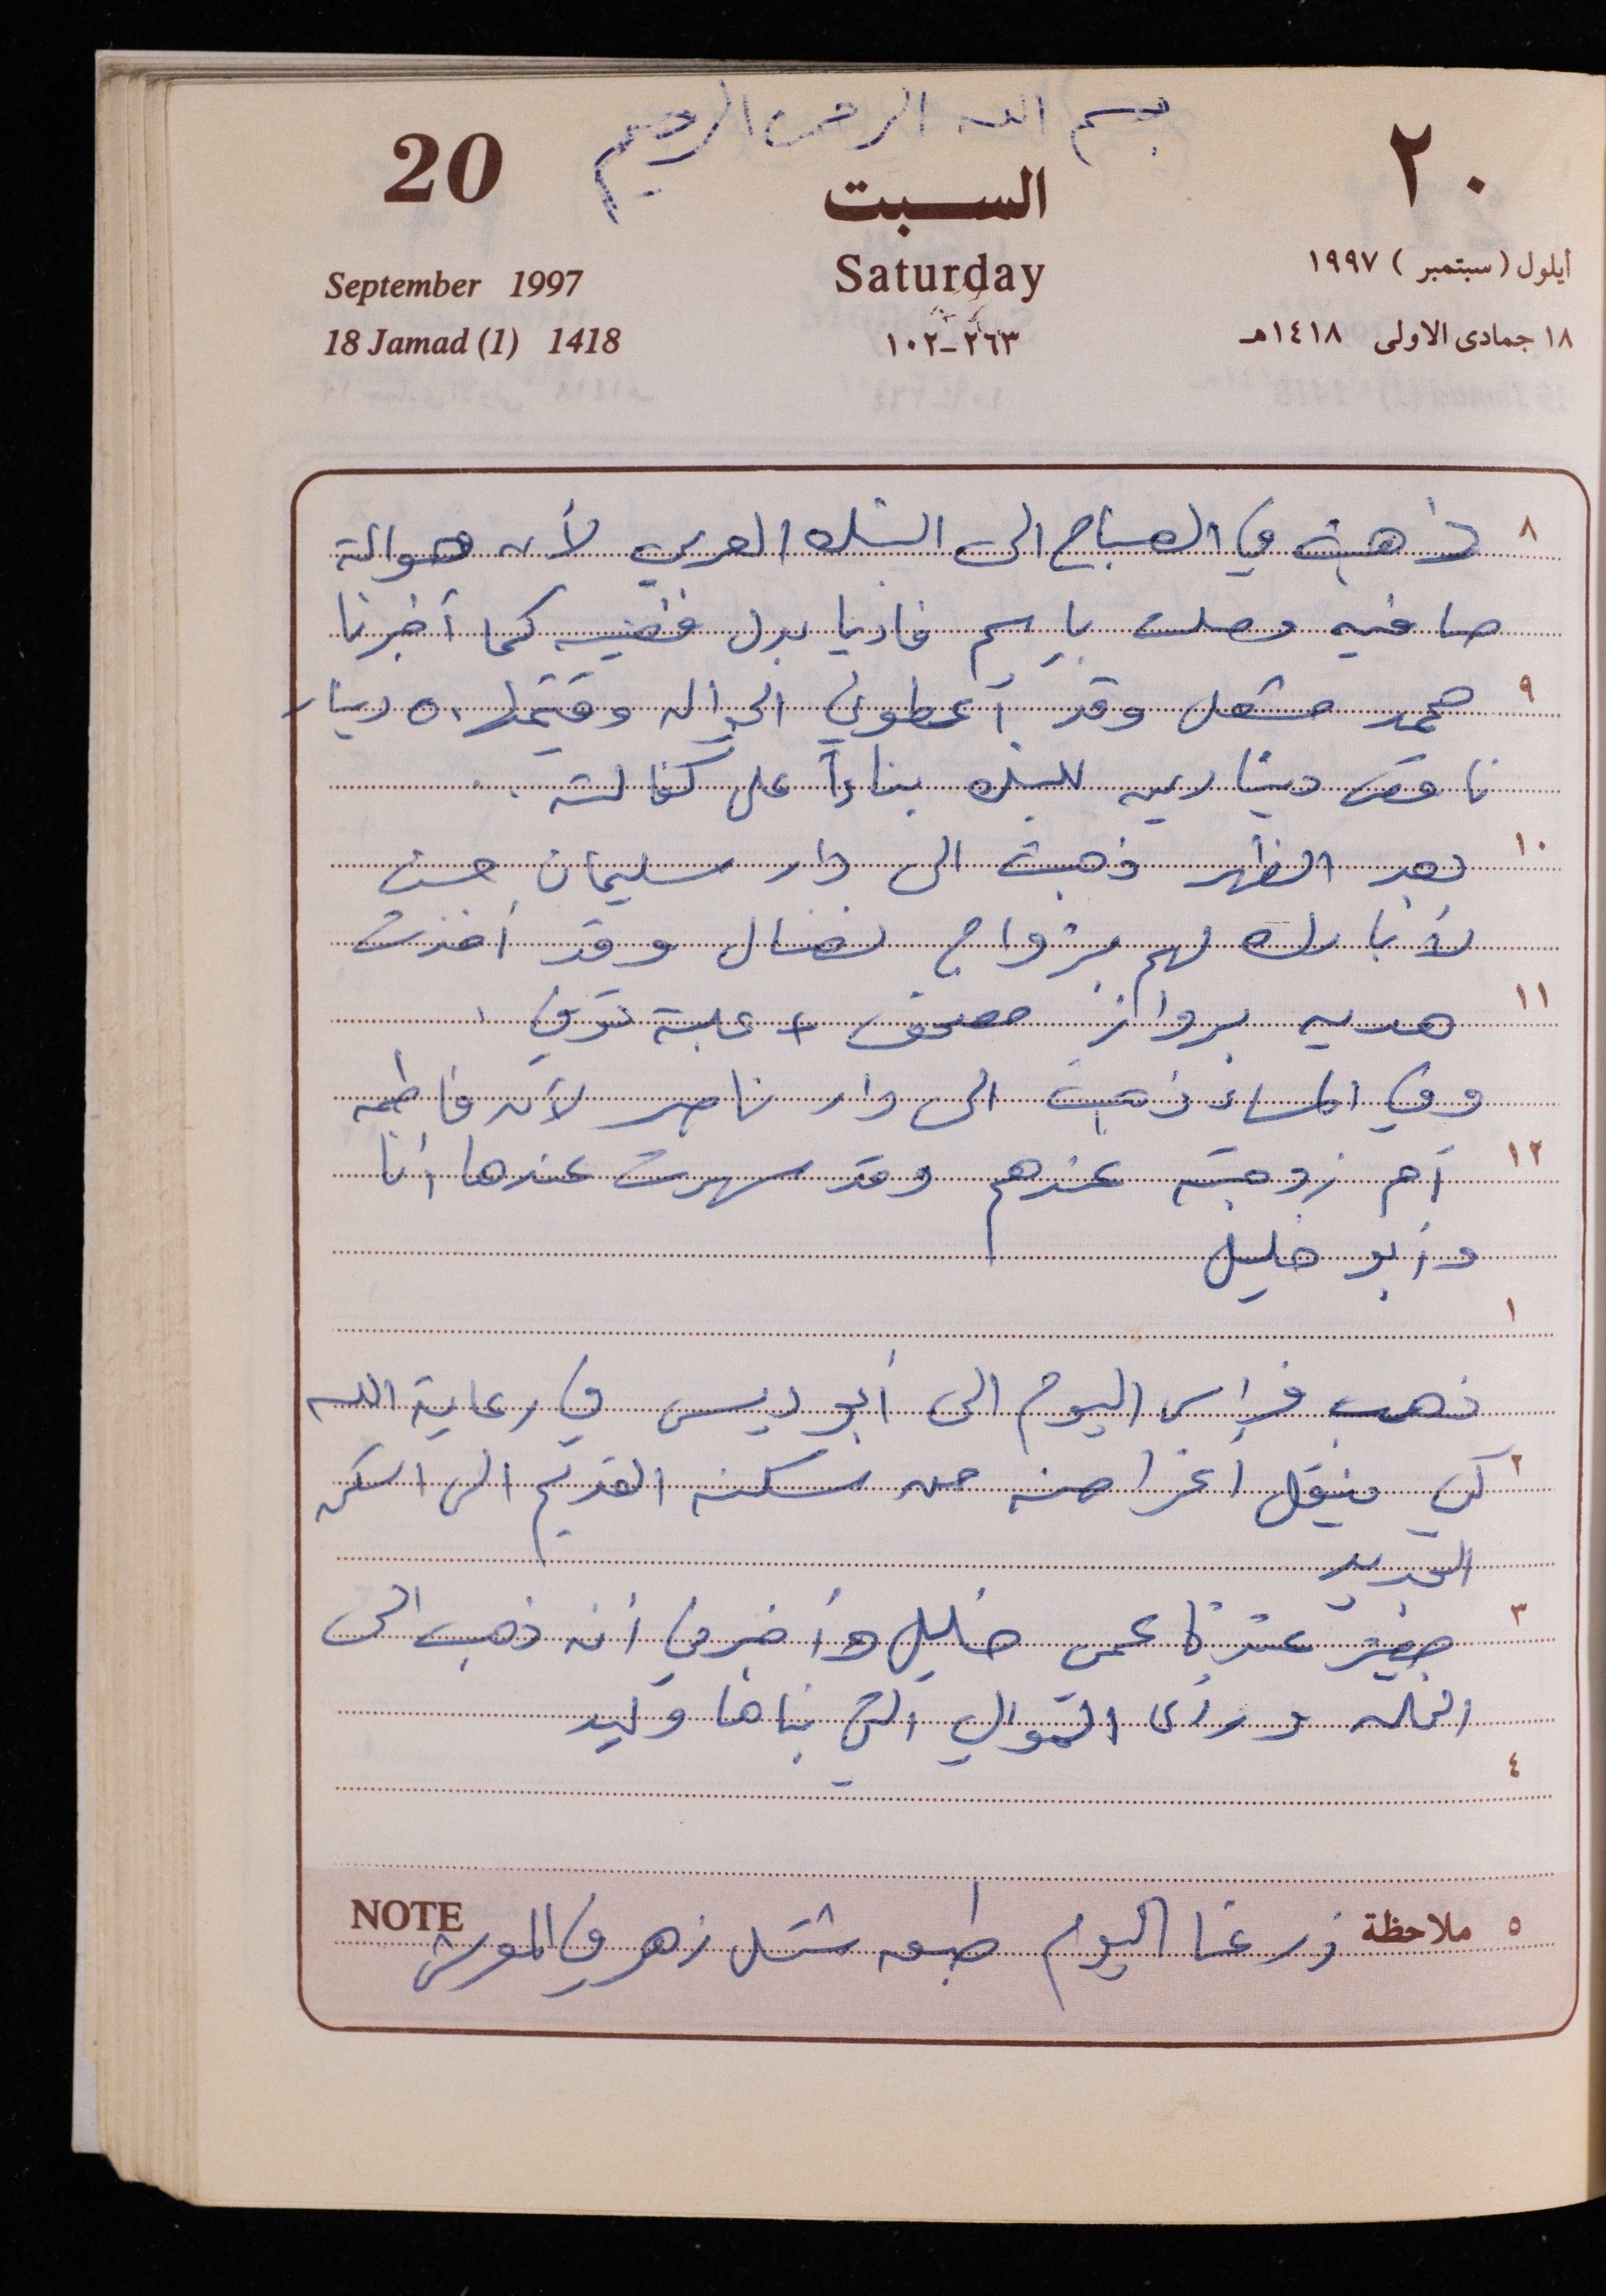 بسم الله الرحمن الرحيم
20
السبت
٢٠
September 1997
Saturday
أيلول (سبتمبر) ١٩٩٧
18 Jamad (1) 1418
٢٦٣-١٠٢
١٨ جمادى الاولى ١٤١٨هـ
٨ ذهبت في الصباح الى البنك العربي لأن حوالة
صافيه وصلت بإسم فاديا بدل فضيه كما أخبرنا
٩ محمد مشعل وقد أعطوني الحواله وقيمتها ٥٠ دينار
ناقص دينارين للبنك بناءاً على كفالته .
١٠ بعد الظهر ذهبت الى دار سليمان حسن
لأبارك لهم بزواج نضال وقد أخذت
١١ هديه برواز مصحف + علبة توفي .
وفي المساء ذهبت الى دار ناصر لأن فاطمه
١٢ أم زوجته عندهم وقد سهرت عندها أنا
وأبو خليل
١
ذهب فراس اليوم الى أبو ديس في رعاية الله
٢ كي ينقل أغراضه من سكنه القديم الى السكن
الجديد
٣ عندنا عمي خليل وأخبرني أنه ذهب الى
النخله ورأى التي بناها وليد
٤
٥ ملاحظة زرعنا اليوم طبعه شتل زهر في المعرش
NOTE